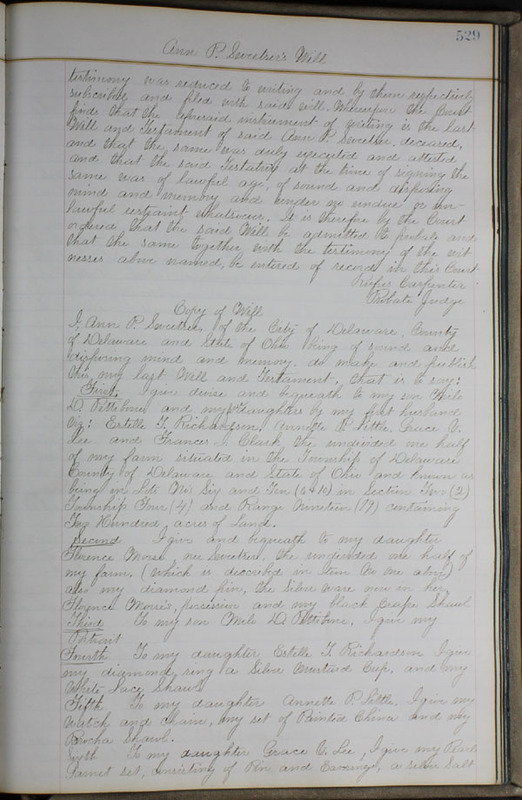 529
Ann P. Sweetser's Will
testimony was reduced to writing and by them respectively
subscribed and filed with said will. Whereupon the Court
finds that the aforesaid instrument of writing is the last
Will and Testament of said Ann P. Sweetser, deceased,
and that the same was duly executed and attested
and that the said Testatrix at the time of signing the
same was of lawful age, of sound and disposing
mind and memory and under no undue or un-
lawful restraint whatsoever. It is therefore by the Court
ordered that the said Will be admitted to probate and
that the same together with the testimony of the wit
nesses above named, be entered of record in this Court
Rufus Carpenter
Probate Judge
Copy of Will
I, Ann P. Sweetser, of the City of Delaware, County
of Delaware and State of Ohio being of sound and
disposing mind and memory do make and publish
this my last Will and Testament, that is to say:
First, I give devise and bequeath to my son Milo
D. Pettibone and my daughters by my first husband
Viz: Estelle F. Richardson, Annette P. Little, Grace V.
Lee and Frances J. Clark the undivided one half
of my farm situated in the Township of Delaware
County of Delaware and State of Ohio and known as
being in Lots No's Six and Ten (6 & 10) in Section Two (2)
Township Four (4) and Range Nineteen (19) containing
Two Hundred acres of Land.
Second I give and bequeath to my daughter
Florence Morris, nee Sweetser, the undivided one half of
my farm, (which is described in Item No one above)
also my diamond pin, the Silver ware now in her,
Florence Morris, possession and my black Crape Shawl
Third To my son Milo D. Pettibone, I give my
Portrait
Fourth To my daughter Estelle F. Richardson I give
my diamond ring a Silver Mustard Cup, and my
White Lace Shawl
Fifth To my daughter Annette P. Little, I give my
watch and chain, my set of Painted China and my
Brocha Shawl.
Sixth To my daughter Grace V. Lee, I give my
Garnet set, consisting of Pin and Earrings, a silver Salt